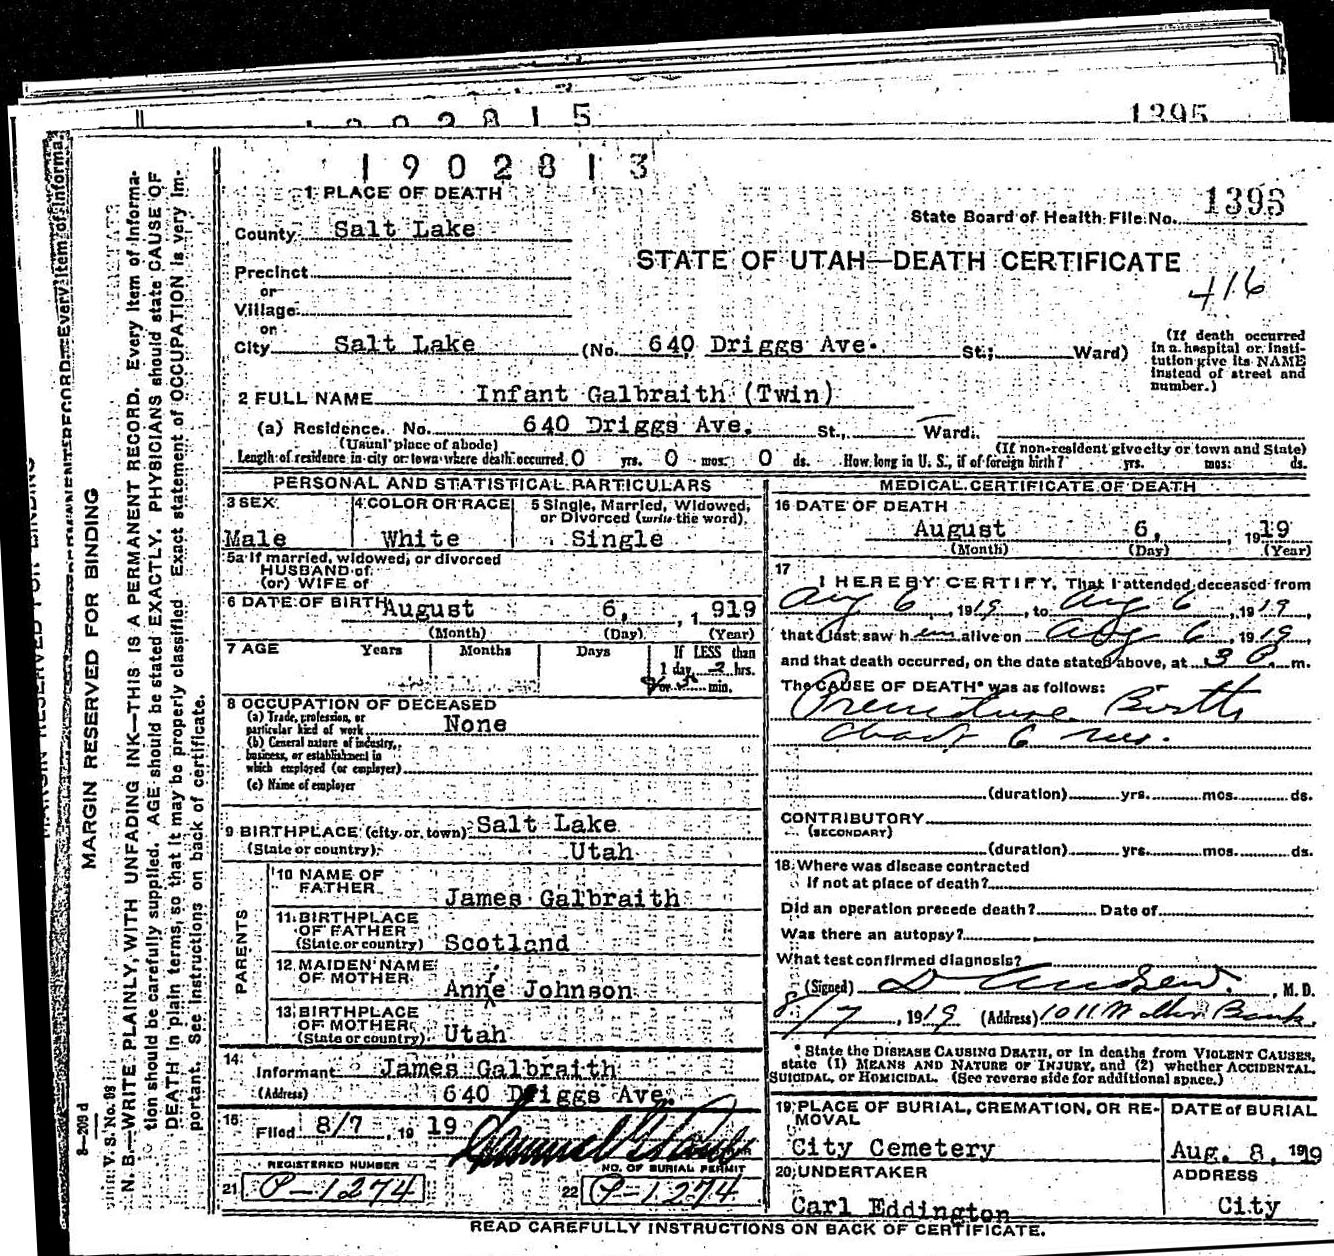 1395
1902813
1 PLACE OF DEATH
State Board of Health File No. 1393
County Salt Lake
STATE OF UTAH—DEATH CERTIFICATE
416
Precinct
or
Village
or
City Salt Lake (No. 640 Driggs Ave. St.; Ward)
(If death occurred
in a hospital or insti-
tution give its NAME
instead of street and
number.)
2 FULL NAME Infant Galbraith (Twin)
(a) Residence. No. 640 Driggs Ave. St., Ward.
(Usual place of abode) (If non-resident give city or town and State)
Length of residence in city or town where death occurred 0 yrs. 0 mos. 0 ds. How long in U. S., if of foreign birth? yrs. mos. ds.
PERSONAL AND STATISTICAL PARTICULARS
3 SEX
Male
4 COLOR OR RACE
White
5 Single, Married, Widowed,
or Divorced (write the word).
Single
5a If married, widowed, or divorced
HUSBAND of
(or) WIFE of
6 DATE OF BIRTH August 6, 1919
(Month) (Day) (Year)
7 AGE Years Months Days If LESS than
1 day 2 hrs.
or min.
8 OCCUPATION OF DECEASED
(a) Trade, profession, or
particular kind of work None
(b) General nature of industry,
business, or establishment in
which employed (or employer)
(c) Name of employer
9 BIRTHPLACE (city or town) Salt Lake
(State or country) Utah
PARENTS
10 NAME OF
FATHER James Galbraith
11 BIRTHPLACE
OF FATHER
(State or country) Scotland
12 MAIDEN NAME
OF MOTHER Anne Johnson
13 BIRTHPLACE
OF MOTHER
(State or country) Utah
14
Informant James Galbraith
(Address) 640 Driggs Ave.
15
Filed 8/7, 1919
REGISTERED NUMBER
21 P-1274
NO. OF BURIAL PERMIT
22 P-1274
MEDICAL CERTIFICATE OF DEATH
16 DATE OF DEATH
August 6, 1919
(Month) (Day) (Year)
17
I HEREBY CERTIFY, That I attended deceased from
Aug 6, 1919, to Aug 6, 1919,
that I last saw h im alive on Aug 6, 1919,
and that death occurred, on the date stated above, at 3 P. m.
The CAUSE OF DEATH* was as follows:
Premature Birth
about 6 mo.
(duration) yrs. mos. ds.
CONTRIBUTORY
(SECONDARY)
(duration) yrs. mos. ds.
18 Where was disease contracted
If not at place of death?
Did an operation precede death? Date of
Was there an autopsy?
What test confirmed diagnosis?
(Signed) M. D.
8/7, 1919 (Address) 1011 Walker Bank
* State the DISEASE CAUSING DEATH, or in deaths from VIOLENT CAUSES,
state (1) MEANS AND NATURE OF INJURY, and (2) whether ACCIDENTAL,
SUICIDAL, OR HOMICIDAL. (See reverse side for additional space.)
19 PLACE OF BURIAL, CREMATION, OR RE-
MOVAL
City Cemetery
DATE of BURIAL
Aug. 8, 1919
20 UNDERTAKER
Carl Eddington
ADDRESS
City
READ CAREFULLY INSTRUCTIONS ON BACK OF CERTIFICATE.
MARGIN RESERVED FOR BINDING
N. B.—WRITE PLAINLY, WITH UNFADING INK—THIS IS A PERMANENT RECORD. Every Item of Informa-
tion should be carefully supplied. AGE should be stated EXACTLY. PHYSICIANS should state CAUSE OF
DEATH in plain terms, so that it may be properly classified. Exact statement of OCCUPATION is very im-
portant. See instructions on back of certificate.